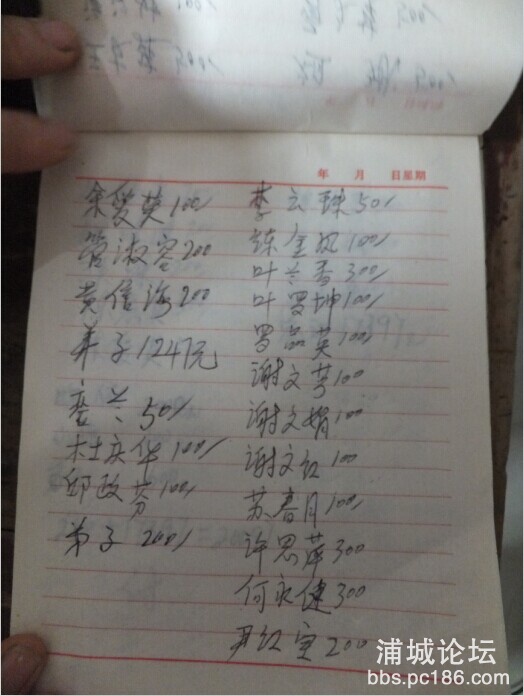 年 月 日星期
余爱英100/
管淑容200
黄信海200
弟子1247元
詹兰50/
杜庆华100/
邱政芬100/
弟子200/
李云珠50/
练金凤100/
叶兰香300/
叶罗坤100/
罗品英100/
谢文芳100
谢文娟100
谢文红100
苏春月100/
许思萍300
何永健300
尹红宝200
浦城论坛
bbs.pc186.com